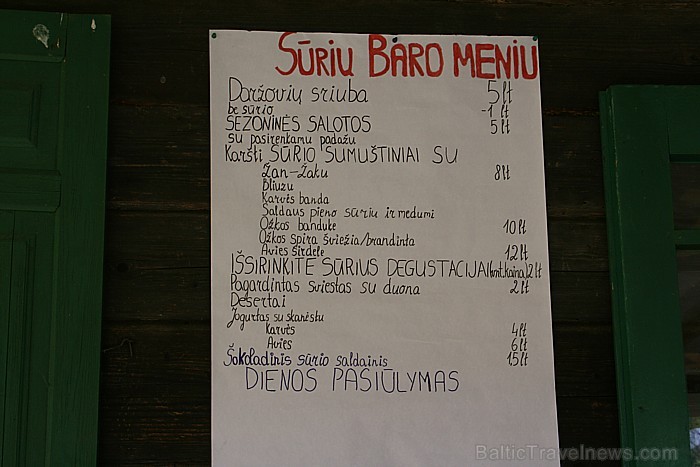 SŪRIŲ BARO MENIU
Daržovių sriuba 5 lt
be sūrio -1 lt
SEZONINĖS SALOTOS 5 lt
su pasirenkamu padažu
Karšti SŪRIO SUMUŠTINIAI SU
Žan-Žaku 8 lt
Bliuzu
Karvės banda
Saldaus pieno sūriu ir medumi
Ožkos bandute 10 lt
Ožkos spira šviežia/brandinta
Avies širdele 12 lt
IŠSIRINKITE SŪRIUS DEGUSTACIJAI (vnt.kaina) 2 lt
Pagardintas sviestas su duona 2 lt
Desertai
Jogurtas su skanėstu
Karvės 4 lt
Avies 6 lt
Šokoladinis sūrio saldainis 15 lt
DIENOS PASIŪLYMAS
BalticTravelnews.com